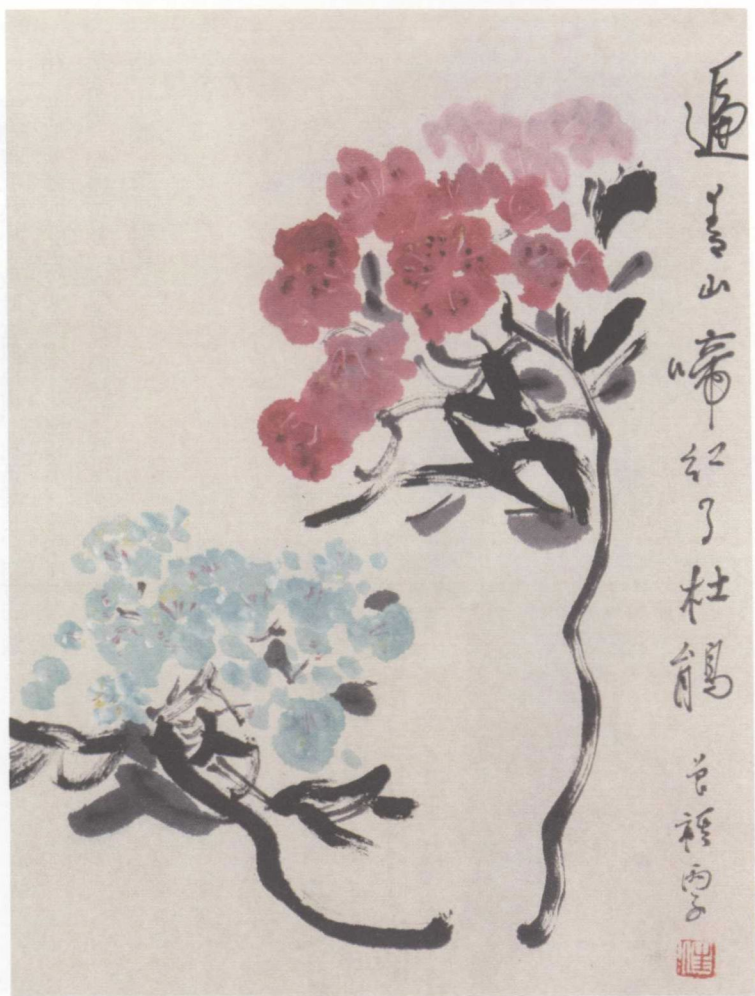 遍青山啼红了杜鹃 曾 丙子